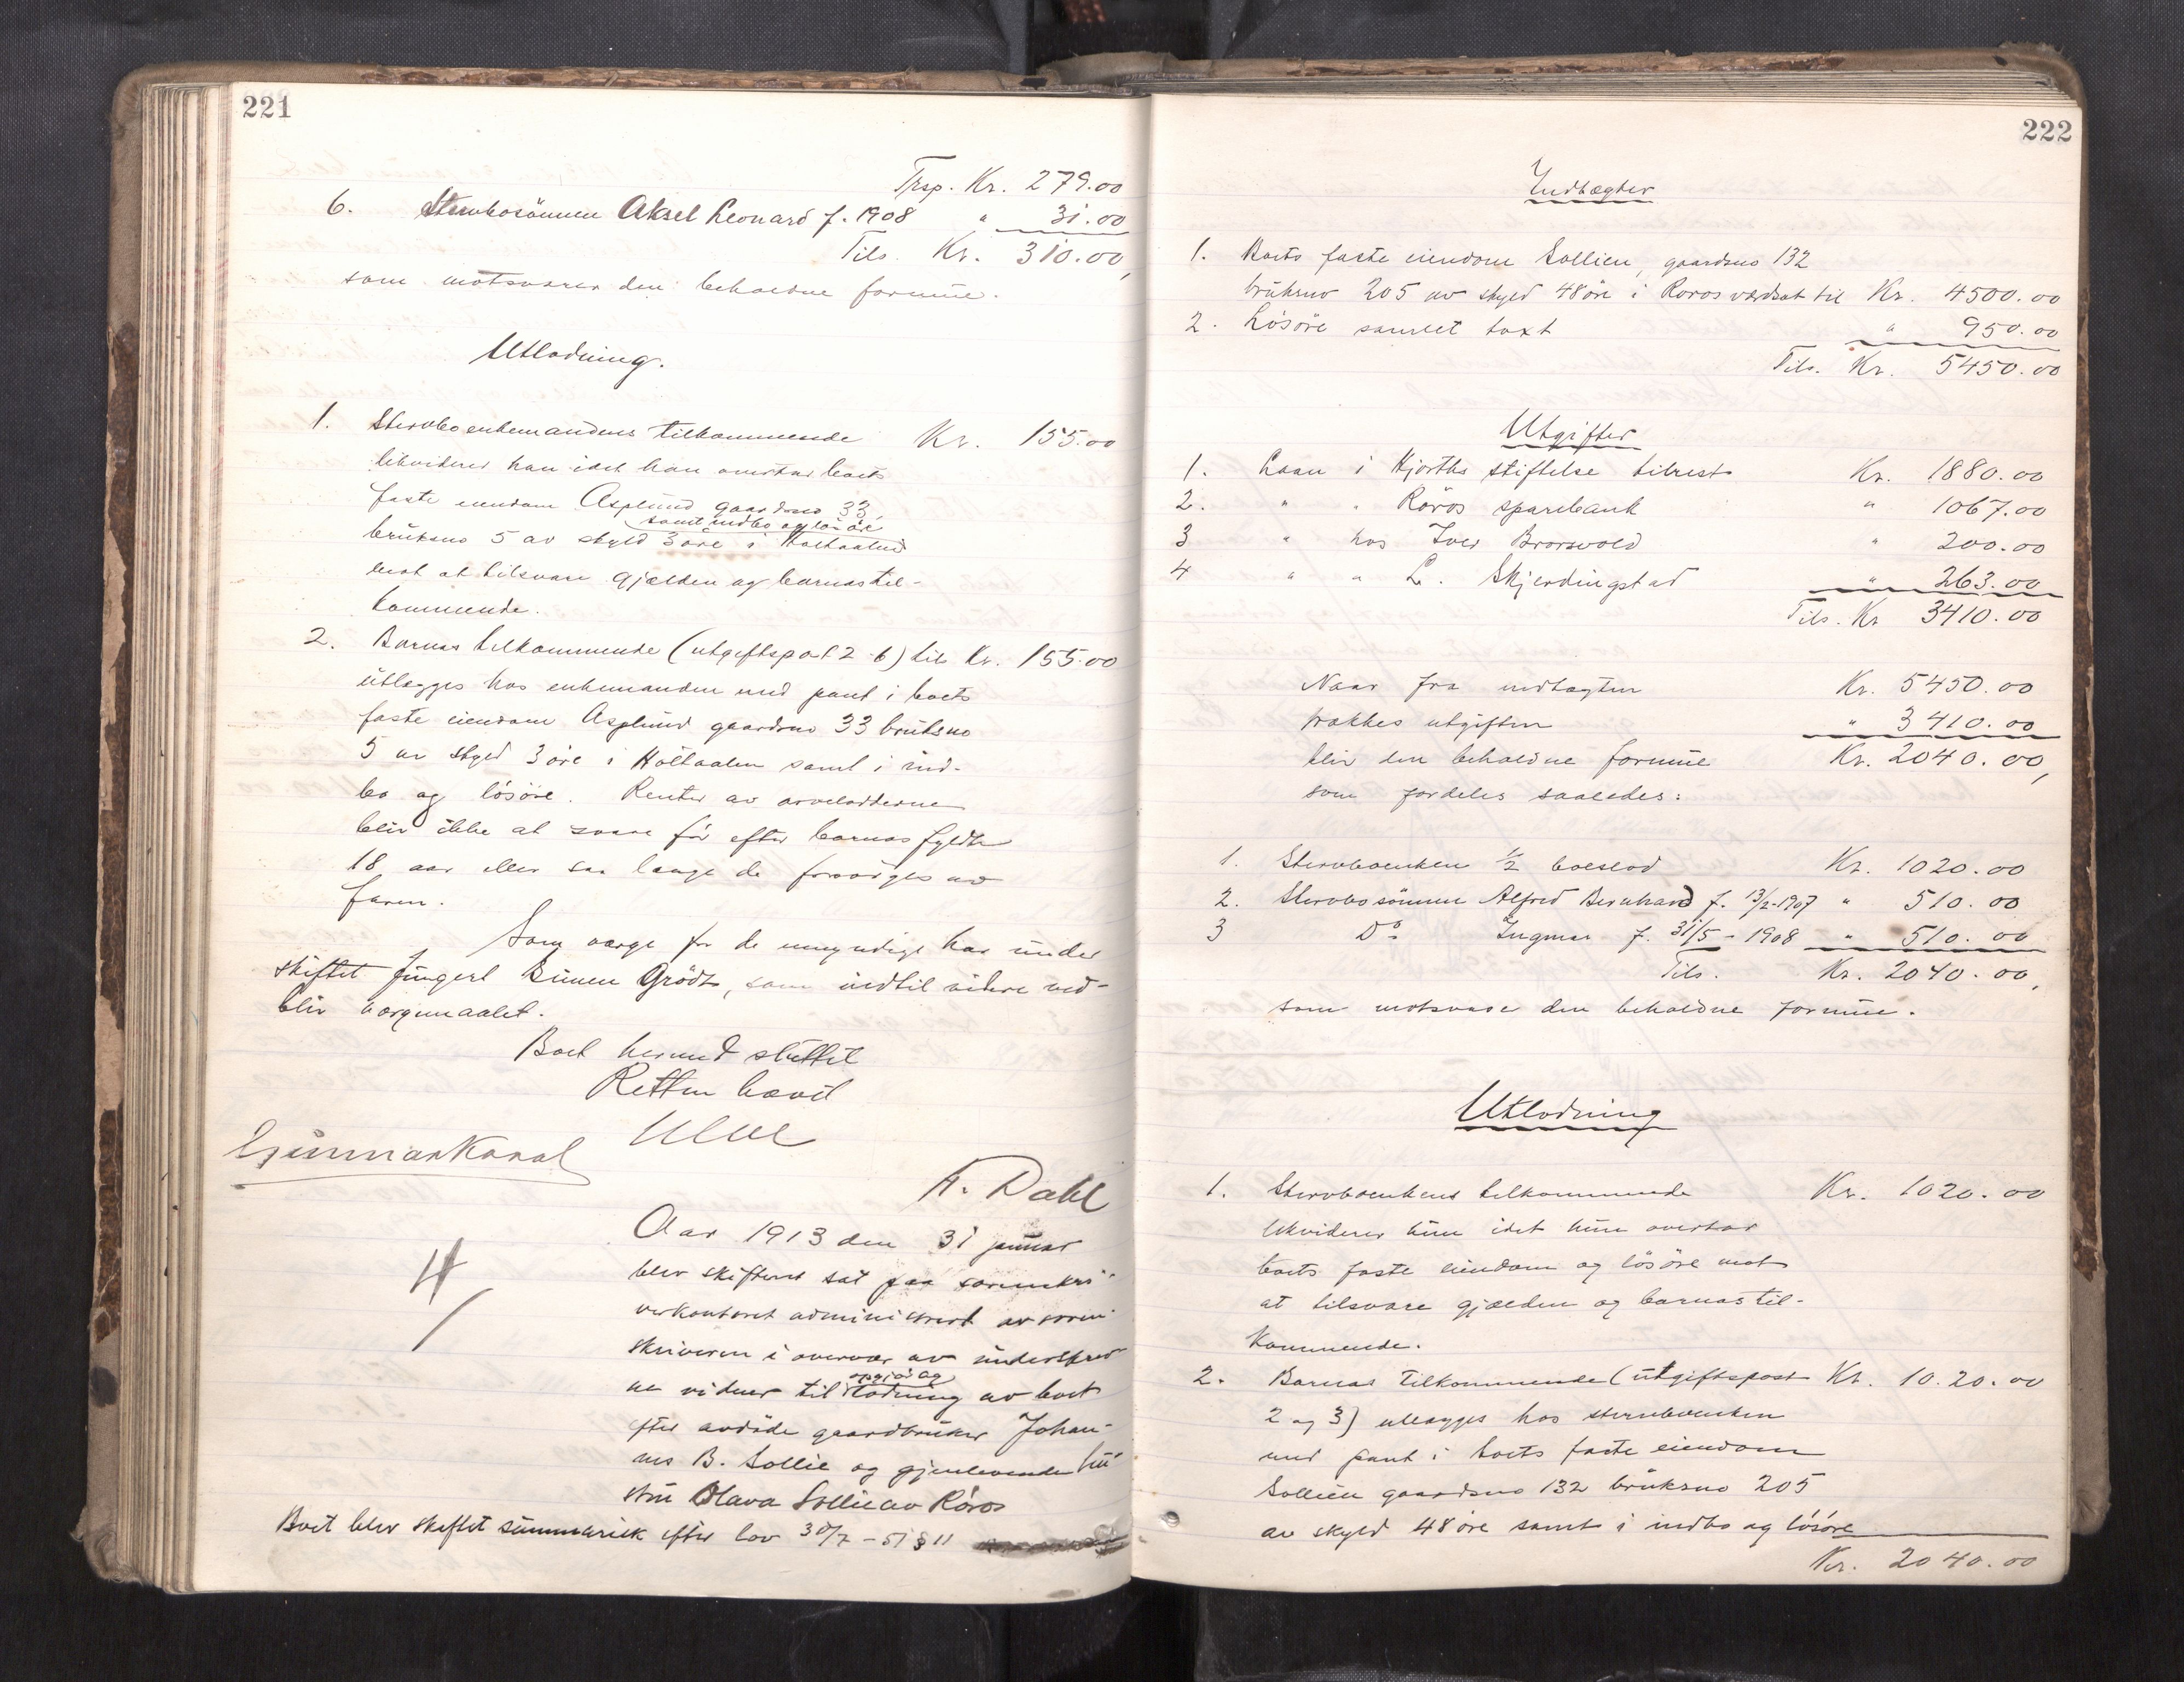 221
Trsp. Kr. 279.00
6. Stervbosönnen Aksel Leonard f. 1908 " 31.00
Tils. Kr. 310.00,
som motsvarer den beholdne formue.
Utlodning.
1. Stervboenkemandens tilkommende Kr. 155.00
likviderer han idet han overtar boets
faste eiendom Asplund gaardsno 33,
samt indbo og lösöre
bruksno 5 av skyld 3 öre i Holtaalen
mot at tilsvare gjælden og barnas til-
kommende.
2. Barnas tilkommende (utgiftspost 2-6) tils Kr. 155.00
utlægges hos enkemanden med pant i boets
faste eiendom Asplund gaardsno 33 bruksno
5 av skyld 3 öre i Holtaalen samt i ind-
bo og lösöre. Renter av arveloddene
blir ikke at svare för efter barnas fyldte
18 aar eller saa længe de forsörges av
faren.
Som værge for de umyndige har under
skiftet fungert Grödt, som indtil videre ved-
blir værgemaalet.
Boet hermed sluttet
Retten hævet
Gunnar Kanal
A. Dahl
Aar 1913 den 31 januar
blev skifteret sat paa sorenskri-
verkontoret administrert av soren-
skriveren i overvær av underskrev-
opgjör og
ne vidner til lodning av boet
efter avdöde gaardbruker Johan-
nes B. Sollie og gjenlevende hu-
stru Olava Sollie av Röros
Boet blev skiftet summarisk efter lov 30/7 - 51 § 11
222
Indtægter
1. Boets faste eiendom Sollien, gaardsno 132
bruksno 205 av skyld 48 öre i Röros værdsat til Kr. 4500.00
2. Lösöre samlet takst " 950.00
Tils. Kr. 5450.00
Utgifter
1. Laan i Hjorths stiftelse tilrest Kr. 1880.00
2. " " Röros sparebank " 1067.00
3 " hos Iver Brorsvold " 200.00
4 " " L. Skjerdingstad " 263.00
Tils. Kr 3410.00
Naar fra indtægten Kr. 5450.00
trækkes utgiften " 3410.00
blir den beholdne formue Kr. 2040.00,
som fordeles saaledes:
1. Stervboenken 1/2 boeslod Kr. 1020.00
2. Stervbosönnen Alfred Bernhard f. 13/2-1907 " 510.00
3 Do Ingmar f. 31/5 - 1908 " 510.00
Tils. Kr. 2040.00,
som motsvarer den beholdne formue.
Utlodning
1. Stervboenkens tilkommende Kr. 1020.00
likviderer hun idet hun overtar
boets faste eiendom og lösöre mot
at tilsvare gjælden og barnas til-
kommende.
2. Barnas tilkommende (utgiftspost Kr. 10.20.00
2 og 3) utlægges hos stervboenken
med pant i boets faste eiendom
Sollien gaardsno 132 bruksno 205
av skyld 48 öre samt i indbo og lösöre
Kr. 2040.00